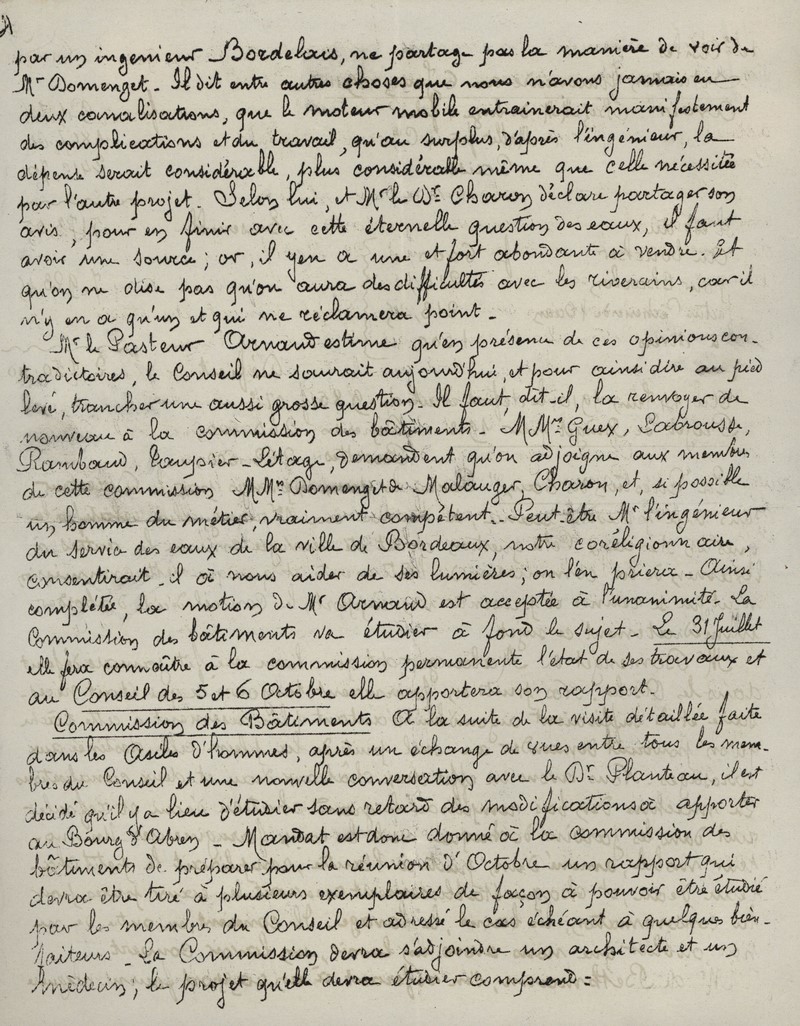 par un ingénieur Bordelais, ne partage pas la manière de voir de
Mr Domenget. Il dit entre autres choses que nous n'avons jamais eu
deux canalisations, que le moteur mobile entrainerait manifestement
des complications et du travail, qu'au surplus, d'après l'ingénieur, la
dépense serait considérable, plus considérable même que celle nécessitée
par l'autre projet. Selon lui, et Mr le Dr Charon déclare partager son
avis, pour en finir avec cette éternelle question des eaux, il faut
avoir une source; or, il y en a une et fort abondante à vendre. Et
qu'on ne dise pas qu'on aura des difficultés avec les riverains, car il
n'y en a qu'un et qui ne réclamera point.
Mr le Pasteur Arnaud estime qu'en présence de ces opinions con-
tradictoires, le Conseil ne saurait aujourd'hui, et pour ainsi dire au pied
levé, trancher une aussi grosse question. Il faut, dit-il, la renvoyer de
nouveau à la commission des bâtiments. MMrs Guex, Labrousse,
Rambaud, Taupier-Létage, demandent qu'on adjoigne aux membres
de cette commission MMrs Domenget de Malauger, Charon, et, si possible
un homme du métier, vraiment compétent. Peut-être Mr l'ingénieur
du service des eaux de la ville de Bordeaux, notre coréligionnaire,
consentirait-il à nous aider de ses lumières; on l'en priera. Ainsi
complétée, la motion de Mr Arnaud est acceptée à l'unanimité. La
Commission des bâtiments va étudier à fond le sujet. Le 31 Juillet
elle fera connaître à la commission permanente l'état de ses travaux et
au Conseil des 5 et 6 Octobre elle apportera son rapport.
Commission des Bâtiments A la suite de la visite détaillée faite
dans les Asiles d'hommes, après un échange de vues entre tous les mem-
bres du Conseil et une nouvelle conversation avec le Dr Planteau, il est
décidé qu'il y a lieu d'étudier sans retard des modifications à apporter
au Bourg d'Abren. Mandat est donc donné à la commission des
bâtiments de préparer pour la réunion d'Octobre un rapport qui
devra être tiré à plusieurs exemplaires de façon à pouvoir être étudié
par les membres du Conseil et adressé le cas échéant à quelques bien-
faiteurs. La Commission devra s'adjoindre un architecte et un
médecin; le projet qu'elle devra étudier comprend: